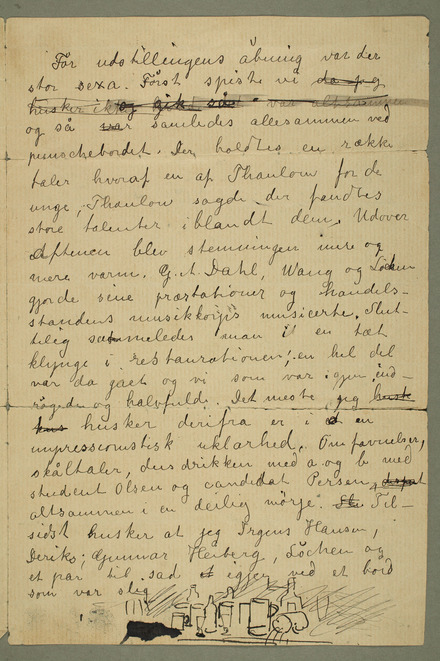 Før udstillingens åbning var der
stor sexa. Først spiste vi da jeg
husker ikke og gik så var altsammen
og så var samledes allesammen ved
punschebordet. Der holdtes en række
taler hvoraf en af Thaulow for de
unge, Thaulow sagde der fandtes
store talenter iblandt dem. Udover
Aftenen blev stemningen mere og
mere varm. G. A. Dahl, Wang og Løchen
gjorde sine præstationer og handels-
standens musikkorps musicerte. Slut-
telig sammeledes man i en tæt
klynge i restaurationen, en hel del
var da gaaet og vi som var igjen, ind-
røgede og halvfulde. Det meste jeg husk
hus husker derifra er i en
impressionistisk uklarhed. Omfavnelser,
skåltaler, dus drikken med a og b med
student Olsen og candidat Persen,
altsammen i en deilig mørje. Til-
sidst husker at jeg Irgens Hansen,
Deriks, Gunnar Heiberg, Løchen og
et par til sad igjen ved et bord
som var slig